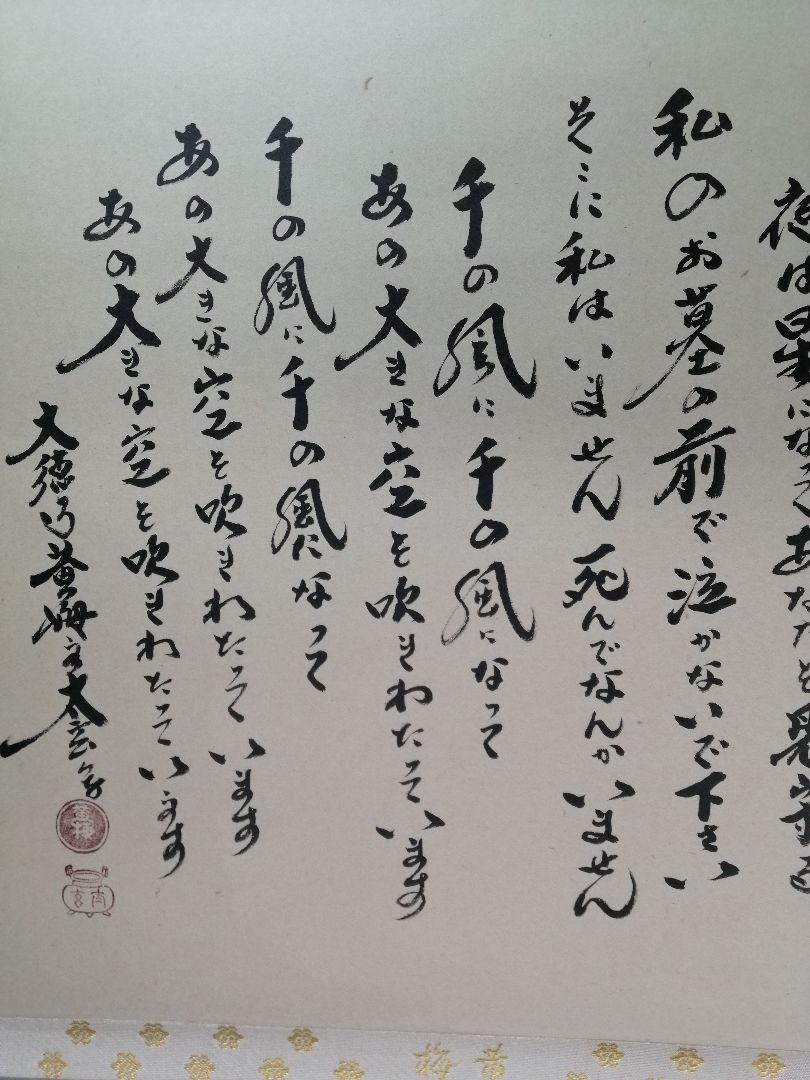 夜は星になってあなたを見守る
私のお墓の前で泣かないで下さい
そこに私はいません 死んでなんかいません
千の風に千の風になって
あの大きな空を吹きわたっています
千の風に千の風になって
あの大きな空を吹きわたっています
あの大きな空を吹きわたっています
大徳寺黄梅主太玄書
黄梅
黄梅